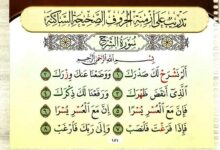 تدريب على أزمنة الحروف الصحيحة الساكنة
سورة الشرح
بسم الله الرحمن الرحيم
أَلَمْ نَشْرَحْ لَكَ صَدْرَكَ ١ وَوَضَعْنَا عَنكَ وِزْرَكَ ٢
الَّذِي أَنقَضَ ظَهْرَكَ ٣ وَرَفَعْنَا لَكَ ذِكْرَكَ ٤
فَإِنَّ مَعَ الْعُسْرِ يُسْرًا ٥ إِنَّ مَعَ الْعُسْرِ يُسْرًا ٦
فَإِذَا فَرَغْتَ فَانصَبْ ٧ وَإِلَىٰ رَبِّكَ فَارْغَب ٨